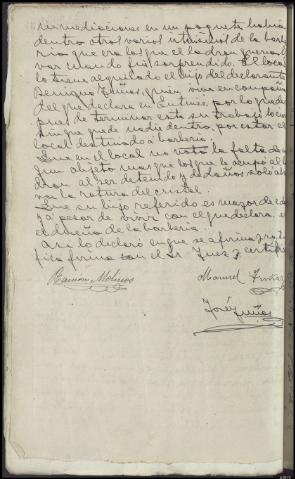 inmediaciones en un paquete habia
dentro otros varios utensilios de la barbe
ria que era los que el ladron queria lle
var cuando fué sorprendido. El local
lo tiene alquilado el hijo del declarante
Benigno Zuños, quien vive en compañia
del que declara en Entimés, por lo que des
pues de terminar esta su trabajo lo cierra
sin que quede nadie dentro, por estar el
local destinado á barberia.
Que en el local no nota la falta de nin
gun objeto mas que los que le ocupó al la
dron al ser detenido y de daños solo abo
na la rotura del cristal.
Que su hijo referido es mayor de edad
y á pesar de vivir con el que declara, es
el dueño de la barberia.
Asi lo declaró en que se afirma y rati
fica firma con el Sr. Juez y certifico
Ramon Molinos Manuel
José Zuños